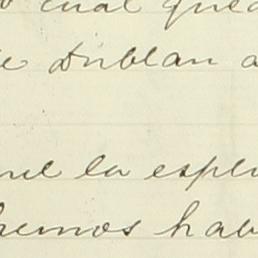 cual que
Dublan a
la espl
hemos hab